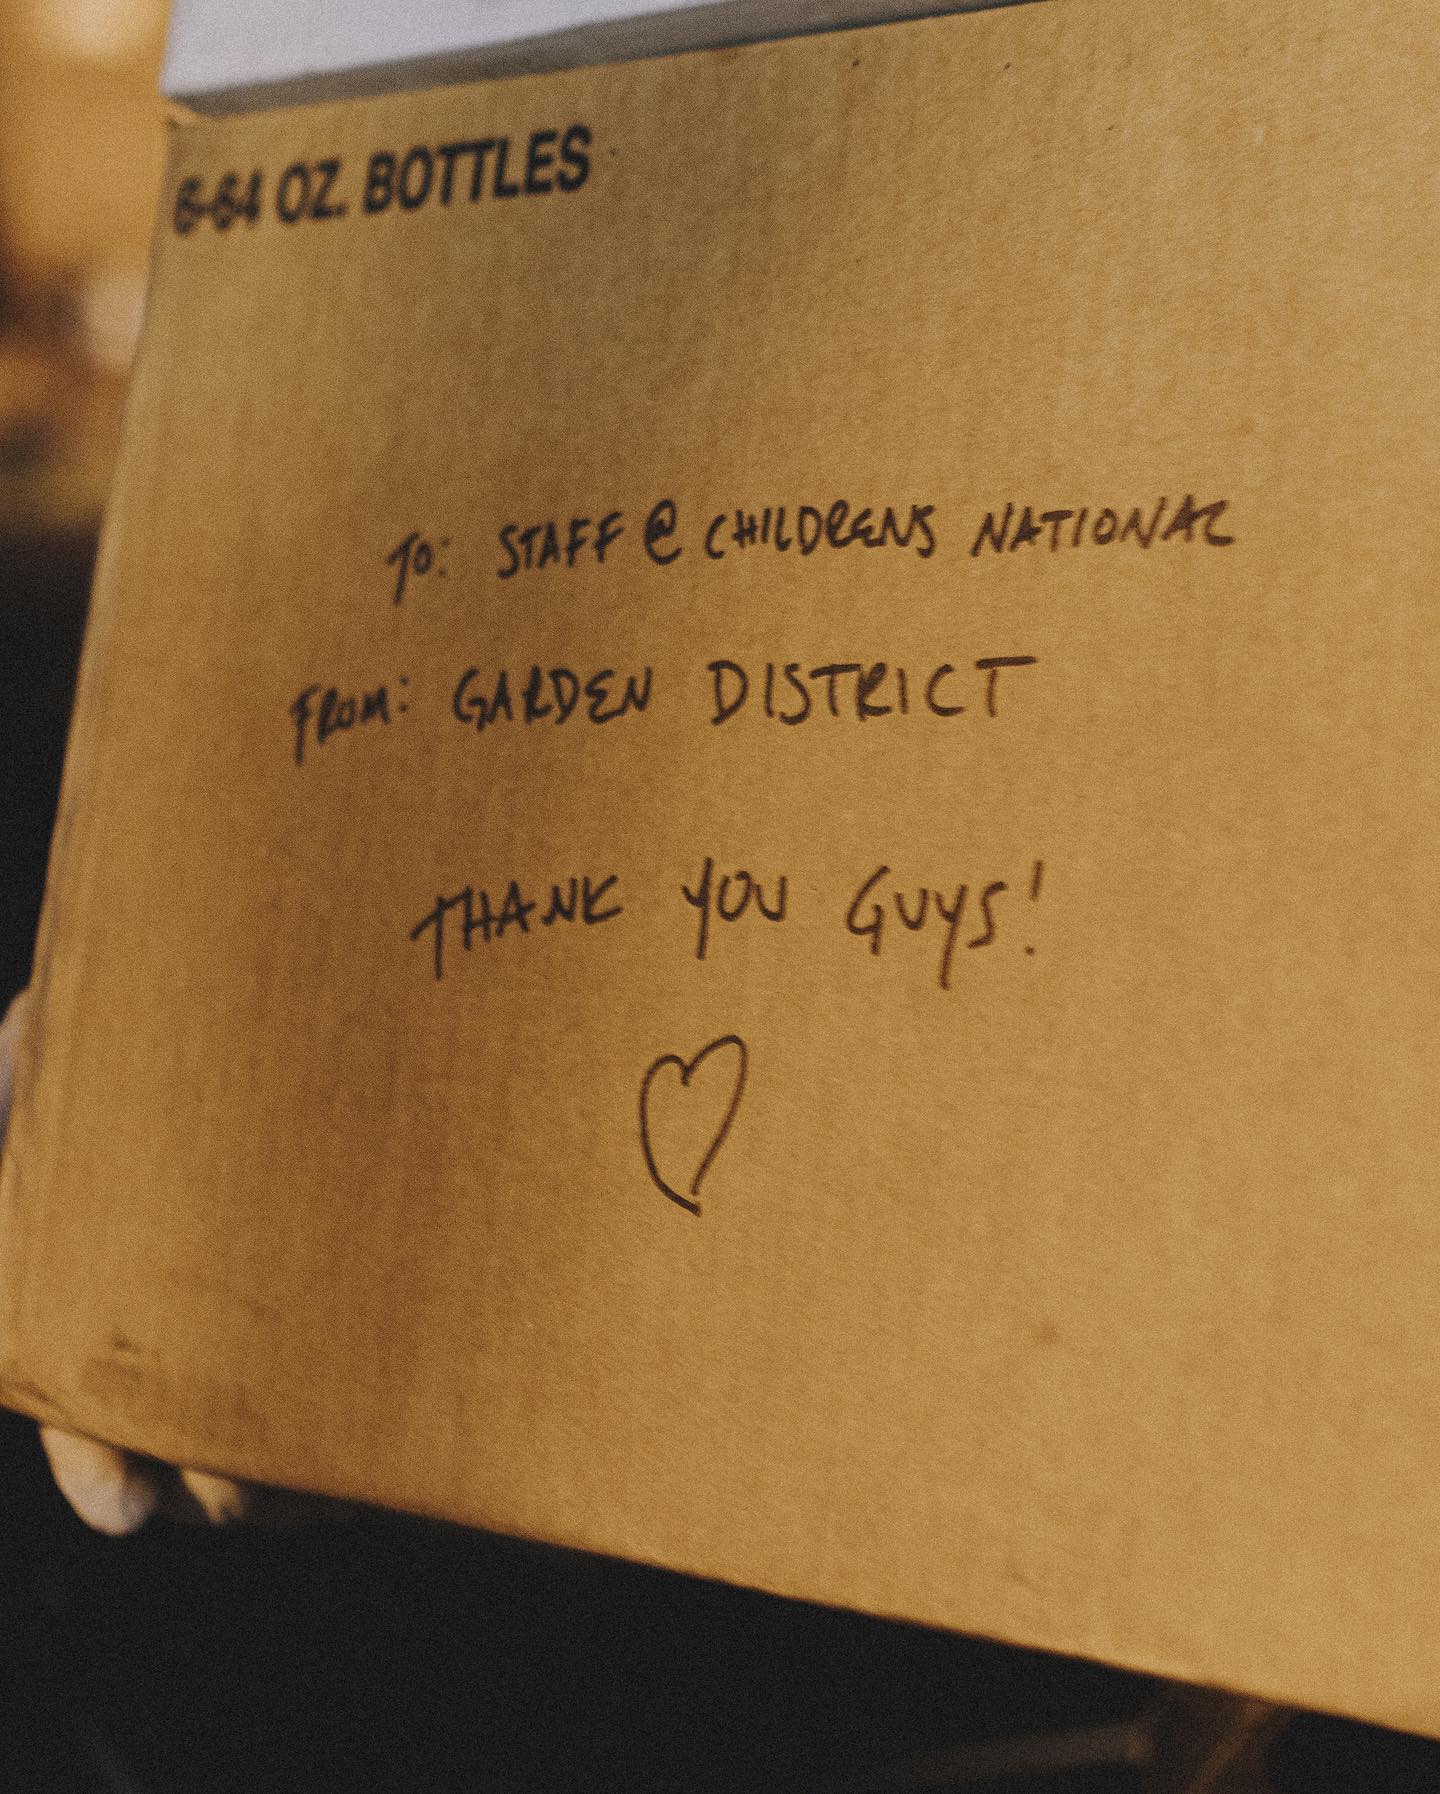 6-64 OZ. BOTTLES
TO: STAFF @ CHILDRENS NATIONAL
FROM: GARDEN DISTRICT
THANK YOU GUYS!